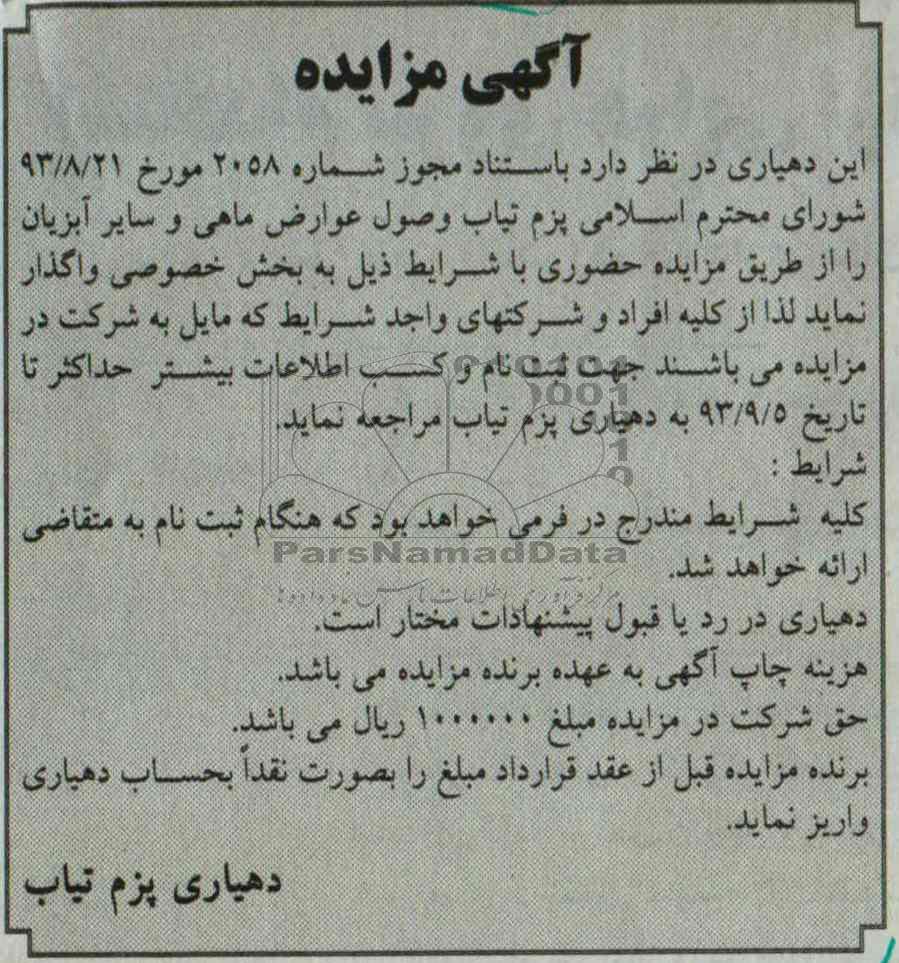 آگهی مزایده
این دهیاری در نظر دارد باستناد مجوز شماره ۲۰۵۸ مورخ ۹۳/۸/۲۱
شورای محترم اسلامی پزم تیاب وصول عوارض ماهی و سایر آبزیان
را از طریق مزایده حضوری با شرایط ذیل به بخش خصوصی واگذار
نماید لذا از کلیه افراد و شرکتهای واجد شرایط که مایل به شرکت در
مزایده می باشند جهت ثبت نام و کسب اطلاعات بیشتر حداکثر تا
تاریخ ۹۳/۹/۵ به دهیاری پزم تیاب مراجعه نماید.
شرایط :
کلیه شرایط مندرج در فرمی خواهد بود که هنگام ثبت نام به متقاضی
ارائه خواهد شد.
ParsNamadData
دهیاری در رد یا قبول پیشنهادات مختار است.
هزینه چاپ آگهی به عهده برنده مزایده می باشد.
حق شرکت در مزایده مبلغ ۱۰۰۰۰۰۰ ریال می باشد.
برنده مزایده قبل از عقد قرارداد مبلغ را بصورت نقداً بحساب دهیاری
واریز نماید.
دهیاری پزم تیاب